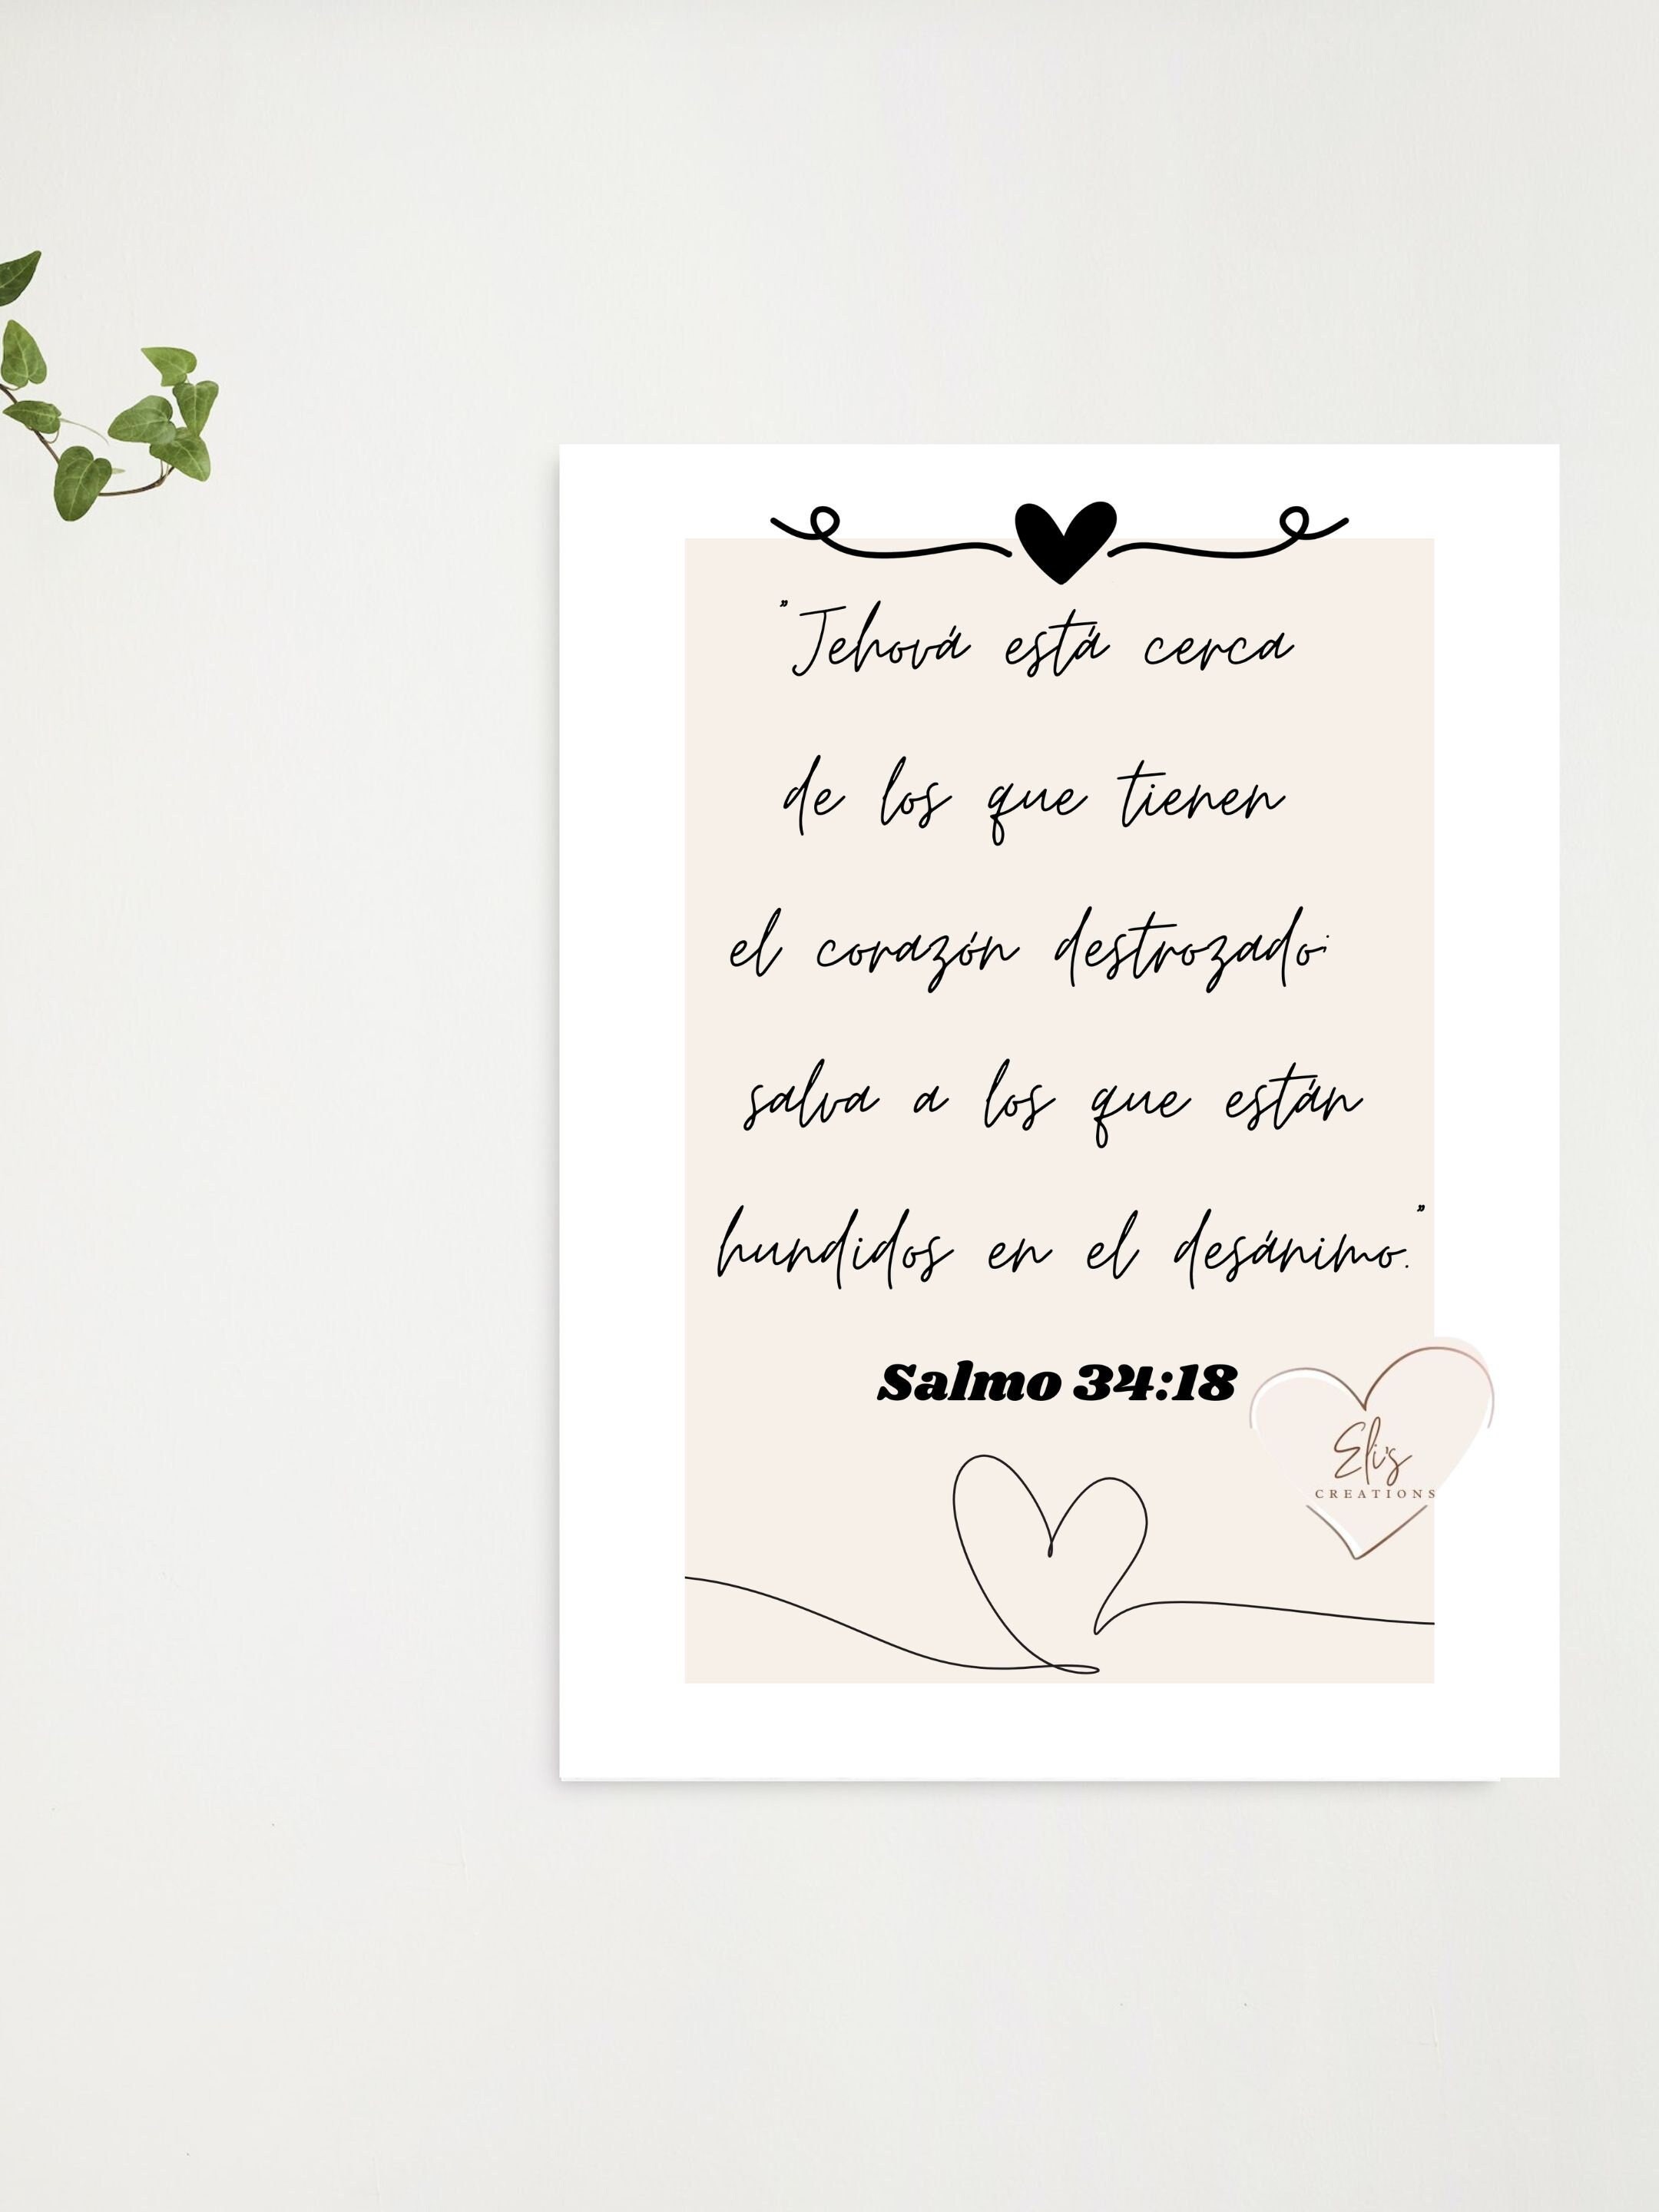 "Jehová está cerca
de los que tienen
el corazón destrozado;
salva a los que están
hundidos en el desánimo."
Salmo 34:18
Eli's
CREATIONS